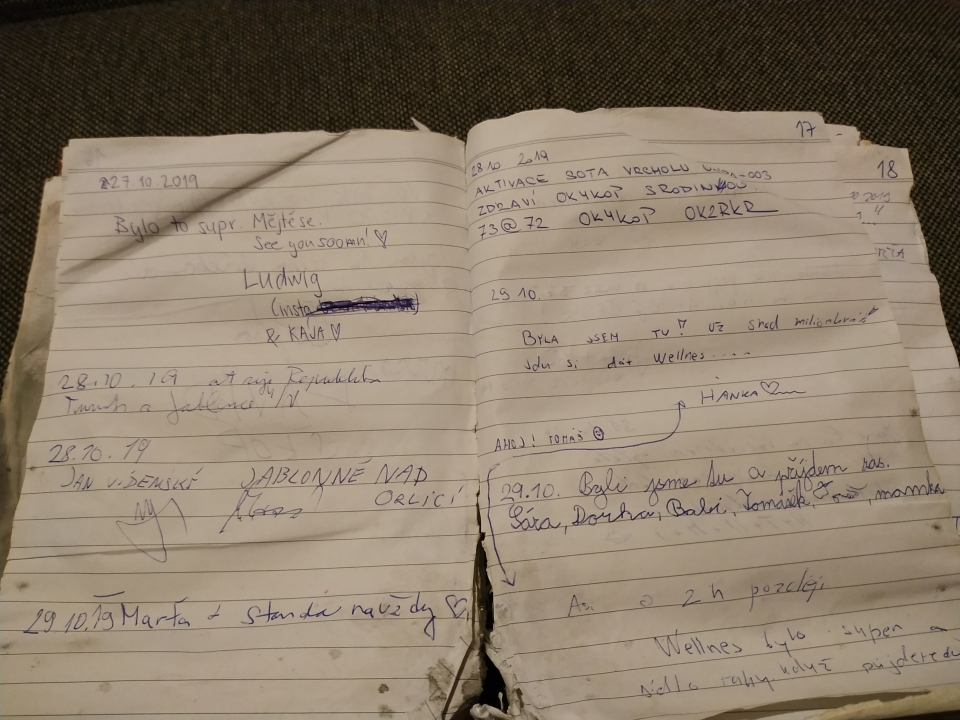 27.10.2019
Bylo to supr Mějtése.
See you sooon! ♡
Ludwig
(insta
& KÁJA ♡
28.10.19 at žije Republika
Turnov a
28.10.19
JAN JABLONNÉ NAD
ORLICÍ
29.10.19 Marťa + Standa navždy ♡
17
28.10 2019
AKTIVACE SOTA VRCHOLU
ZDRAVÍ OK4KOP S RODINKOU
73@72 OK4KOP OK2RKR
29.10.
BYLA JSEM TU!! Už snad
Jdu si dát Wellnes....
HANKA♡
AHOJ! TOMÁŠ ☺
29.10. Byli jsme tu a přijdem zas.
Sára, Babi, Tomášek, mamka
Asi o 2h pozdeji
Wellnes bylo super a
když
18